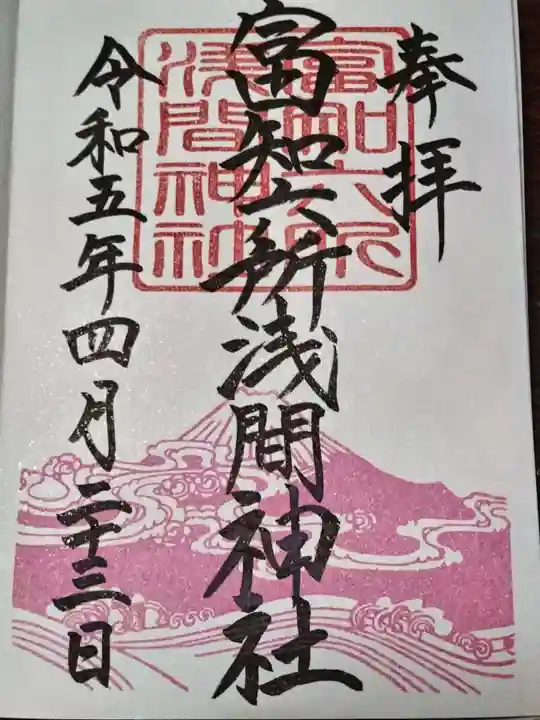 奉拝
富知六所浅間神社
令和五年四月二十三日
富知六所
浅間神社